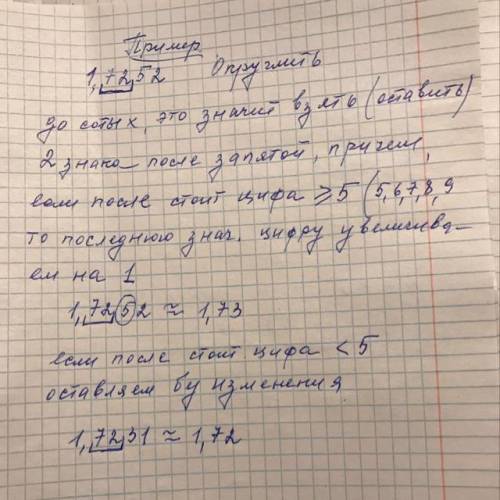 Пример
1,7252 Округлить
до сотых, это значит взять (оставить)
2 знака после запятой, причем,
если после стоит цифа ⩾ 5 (5,6,7,8,9
то последнюю знач. цифру увеличива-
ем на 1
1,7252 ≈ 1,73
если после стоит цифа < 5
оставляем бу изменения
1,7231 ≈ 1,72